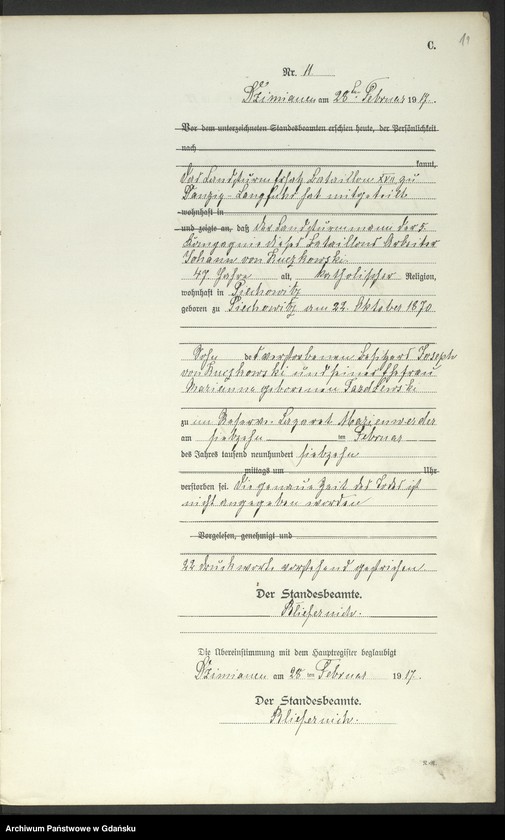 C.
11
Nr. 11
Dzimianen am 28ten Februar 1917.
Vor dem unterzeichneten Standesbeamten erschien heute, der Persönlichkeit
nach
kannt,
Das Landsturm Ersatz Bataillon XVII zu
Danzig-Langfuhr hat mitgeteilt
wohnhaft in
und zeigte an, daß der Landsturmmann der 5.
Kompagnie dieses Bataillons Arbeiter
Johann von Kuczkowski
47 Jahre alt, katholischer Religion,
wohnhaft in Piechowitz
geboren zu Piechowitz am 22. Oktober 1870
Sohn des verstorbenen Besitzers Joseph
von Kuczkowski und seiner Ehefrau
Marianne geborenen
zu im Reserve-Lazaret Marienwerder
am siebzehn ten Februar
des Jahres tausend neunhundert siebzehn
mittags um Uhr
verstorben sei. Die genaue Zeit des Todes ist
nicht angegeben worden
Vorgelesen, genehmigt und
22 Druckworte vorstehend gestrichen.
Der Standesbeamte.
Die Übereinstimmung mit dem Hauptregister beglaubigt
Dzimianen am 28ten Februar 1917.
Der Standesbeamte.
Archiwum Państwowe w Gdańsku